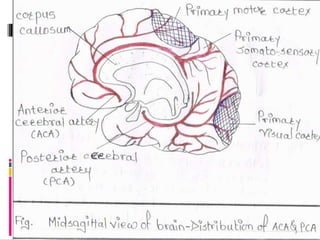 corpus
callosum
Primary motor cortex
Primary
somato-sensory
cortex
Anterior
cerebral artery
(ACA)
Posterior cerebral
artery
(PCA)
Primary
Visual corte
Fig. Midsagittal view of brain-Distribution of ACA & PCA